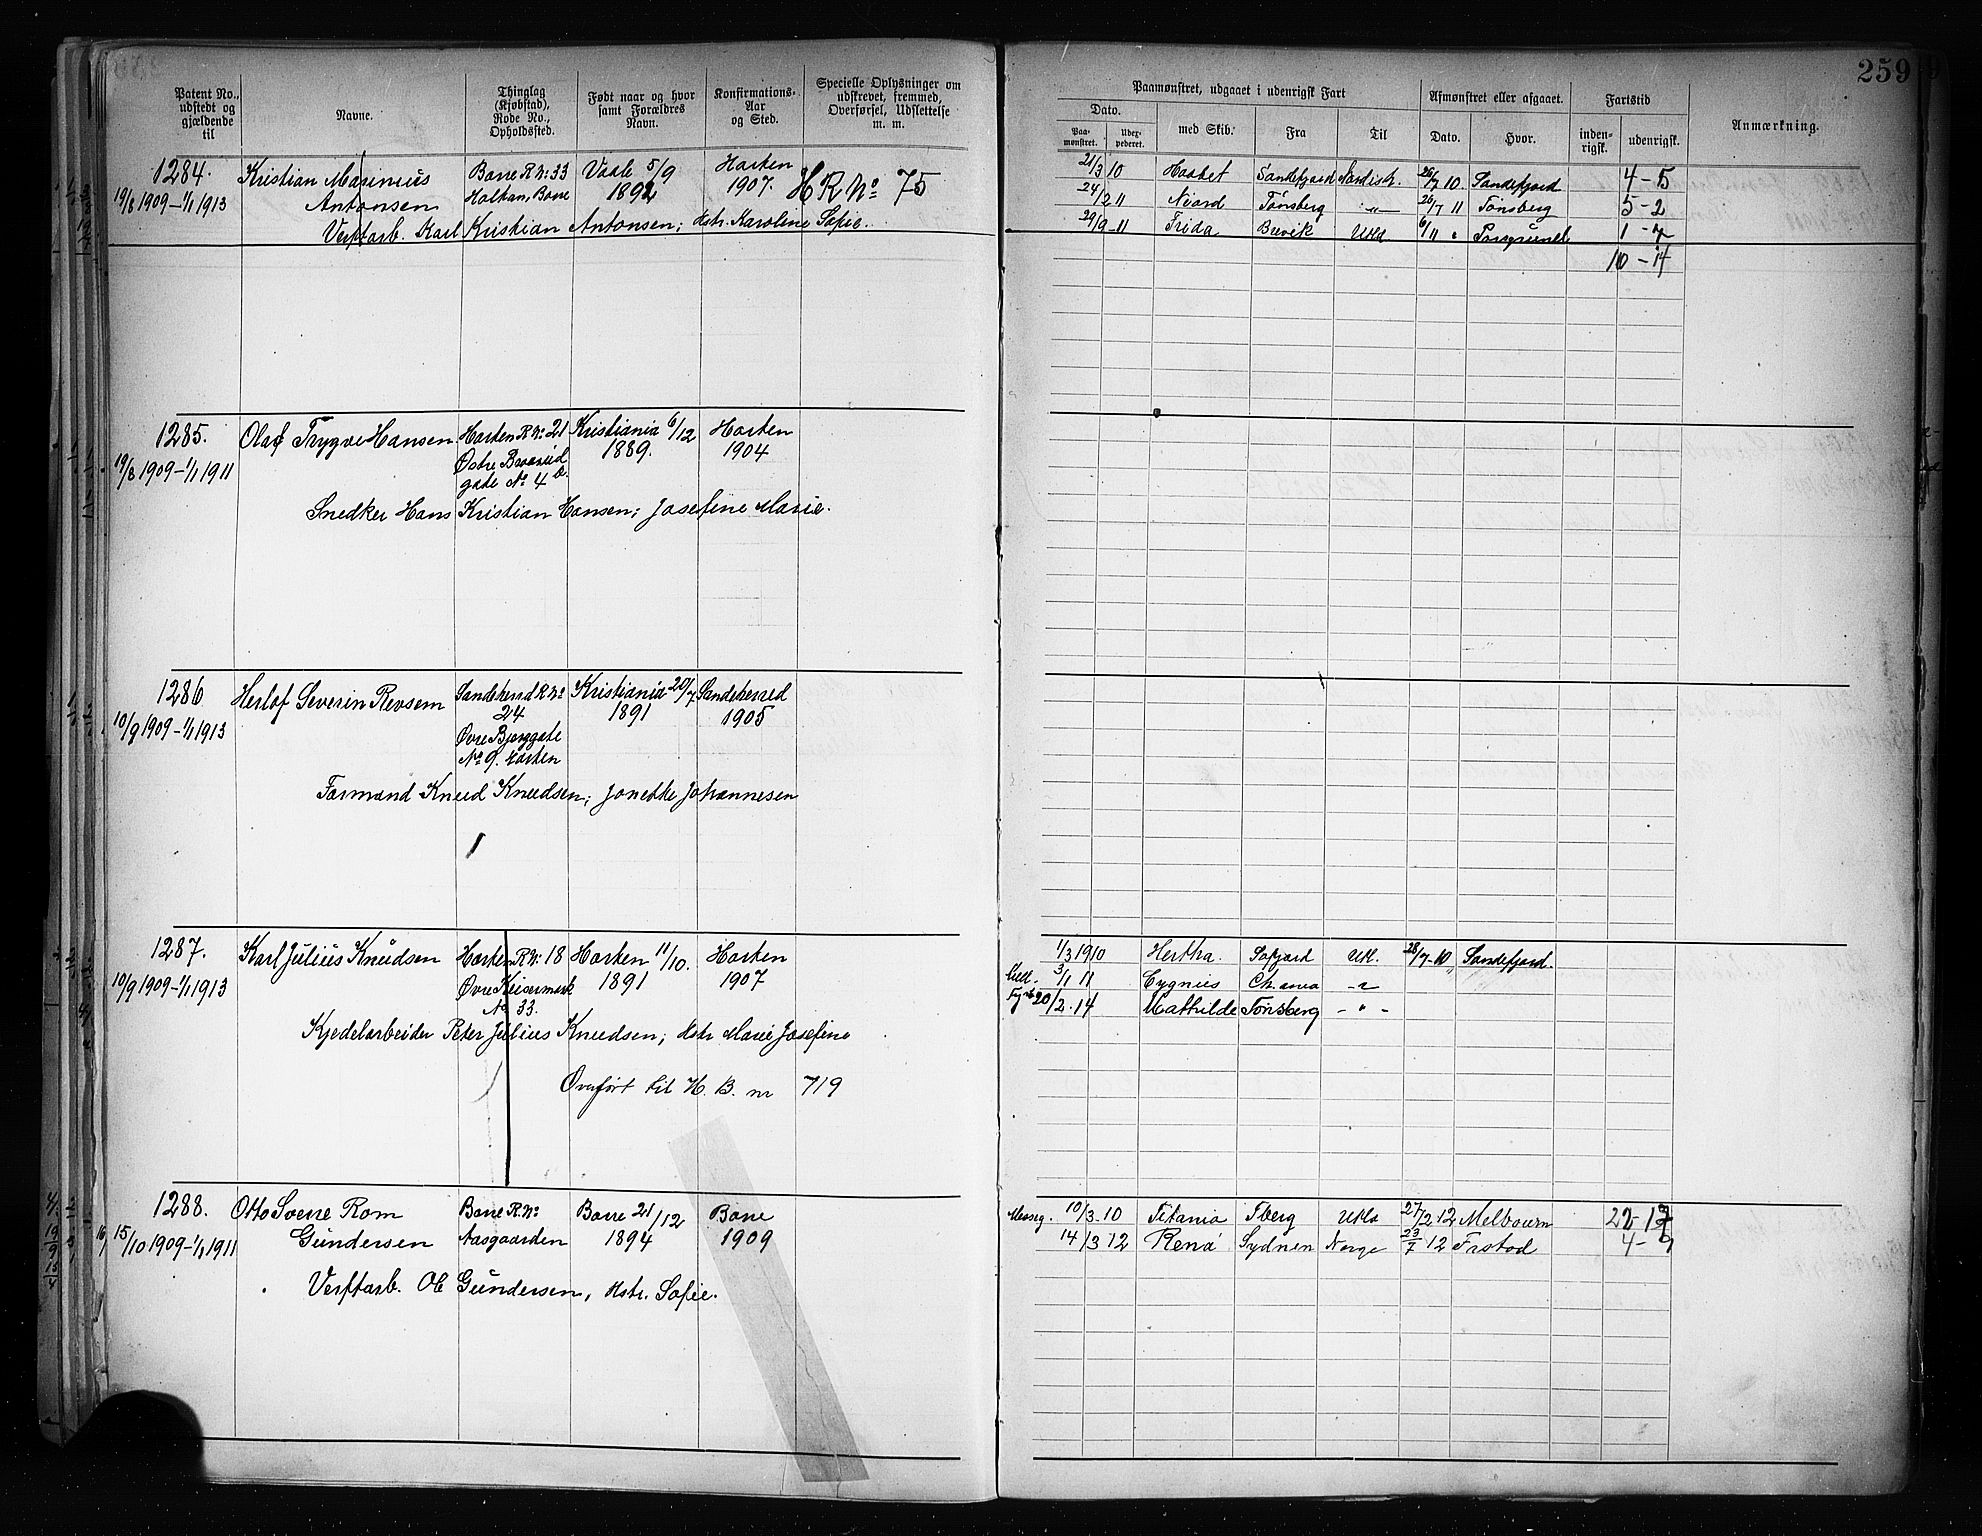 259
Patent No., udstedt og gjældende til
Navne.
Thinglag (Kjøbstad), Rode No., Opholdssted.
Født naar og hvor samt Forældres Navn.
Konfirmations-Aar og Sted.
Specielle Oplysninger om udskrevet, fremmed, Overførsel, Udslettelse m. m.
Paamønstret, udgaaet i udenrigsk Fart
Afmønstret eller afgaaet.
Fartstid
Anmærkning.
Dato.
Paa-mønstret.
Uber-pederet.
med Skib.
Fra
Til
Dato.
Hvor.
inden-rigsk.
udenrigsk.
1284. Kristian Marinius Borre R.No: 33 Vaale 5/9 Horten
19/8 1909–1/1 1913 Antonsen Holtan, Borre 1892 1907. H R No: 75
Verftarb. Karl Kristian Antonsen; Hstr. Karoline Sofie.
21/3 10 Haabet Sandefjord Nordish. 26/7 10 Sandefjord 4 – 5
24/2 11 Niord Tønsberg –„– 26/7 11 Tønsberg 5 – 2
29/9 – 11 Frida Brevik Utld 6/11 " Porsgrund 1 – 7
10 – 14
1285. Olaf Trygve Hansen Horten R No: 21 Kristiania 6/12 Horten
19/8 1909–1/1 1911 Østre 1889. 1904
gade No 4 b.
Snedker Hans Kristian Hansen; Josefine Marie.
1286 Herlof Severin Revsem Sandeherred R No Kristiania 20/7 Sandeherred
10/9 1909–1/1 1913 24 1891 1905
Øvre Bjerggate
No 9. Horten
Formand Knud Knudsen; Jonette Johannesen
1287. Karl Julius Knudsen Horten R No: 18 Horten 11/10. Horten
10/9 1909–1/1 1913 Øvre Keisermark 1891 1907
No 33.
Kjedelarbeider Peter Julius Knudsen; Hstr Marie Josefine
Overført til H. B. nr 719
1/3 1910 Hertha. Utl. 28/7–10 Sandefjord.
3/1 11 Cygnus Ch.ania – " –
20/2. 14 Mathilde Tønsberg – " –
1288. Otto Sverre Rom Borre R.No Borre 21/12 Borre
15/10 1909–1/1 1911 Gundersen Aasgaarden 1894 1909
Verftarb. Ole Gundersen, Hstr. Sofie.
Messeg. 10/3 10 Titania Tberg Utld 27/2 12 Melbourn
14/3 12 Rena Sydney Norge 23/7 12